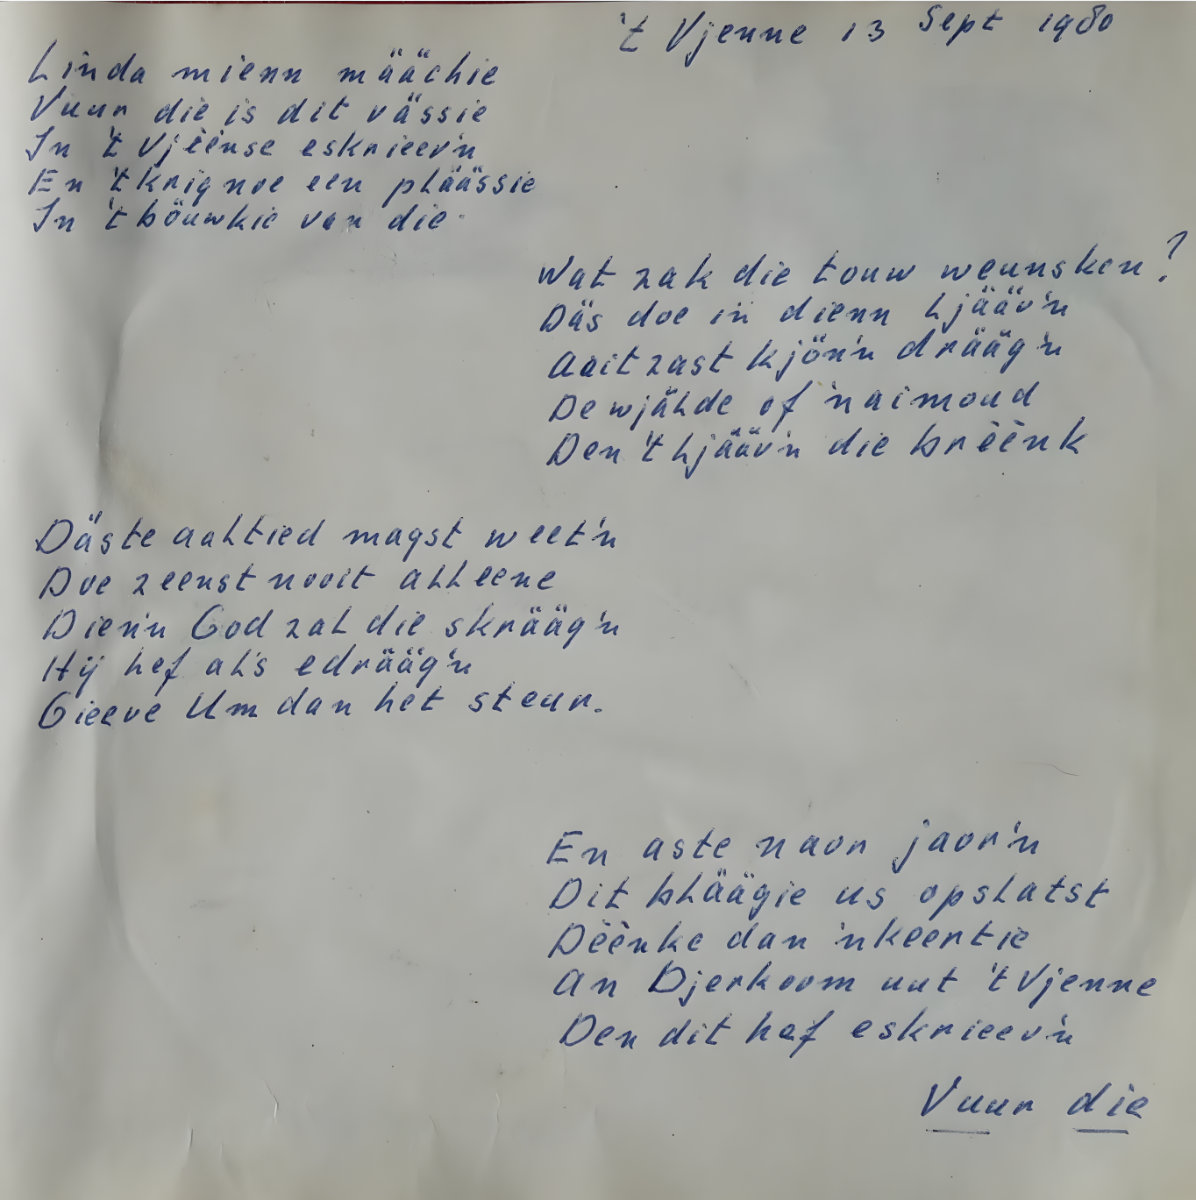 't Vjenne 13 Sept 1980
Linda mienn määchie
Vuur die is dit vässie
In 't Vjèènse eskrieev'n
En 't krig noe een pläässie
In 't böuwkie van die
Wat zak die touw weunsken?
Däs doe in dienn Ljääv'n
Aait zast kjön'n drääg'n
De wjälde of 'n aimoud
Den 't Ljääv'n die brèènk
Däste aaltied magst weet'n
Doe zeenst nooit alleene
Dien'n God zal die skrääg'n
Hij hef al's edrääg'n
Gieeve Um dan het steur.
En aste naor jaor'n
Dit bläägie us opslatst
Dèènke dan 'n keertie
An Djerkoom uut 't Vjenne
Den dit hef eskrieev'n
Vuur die